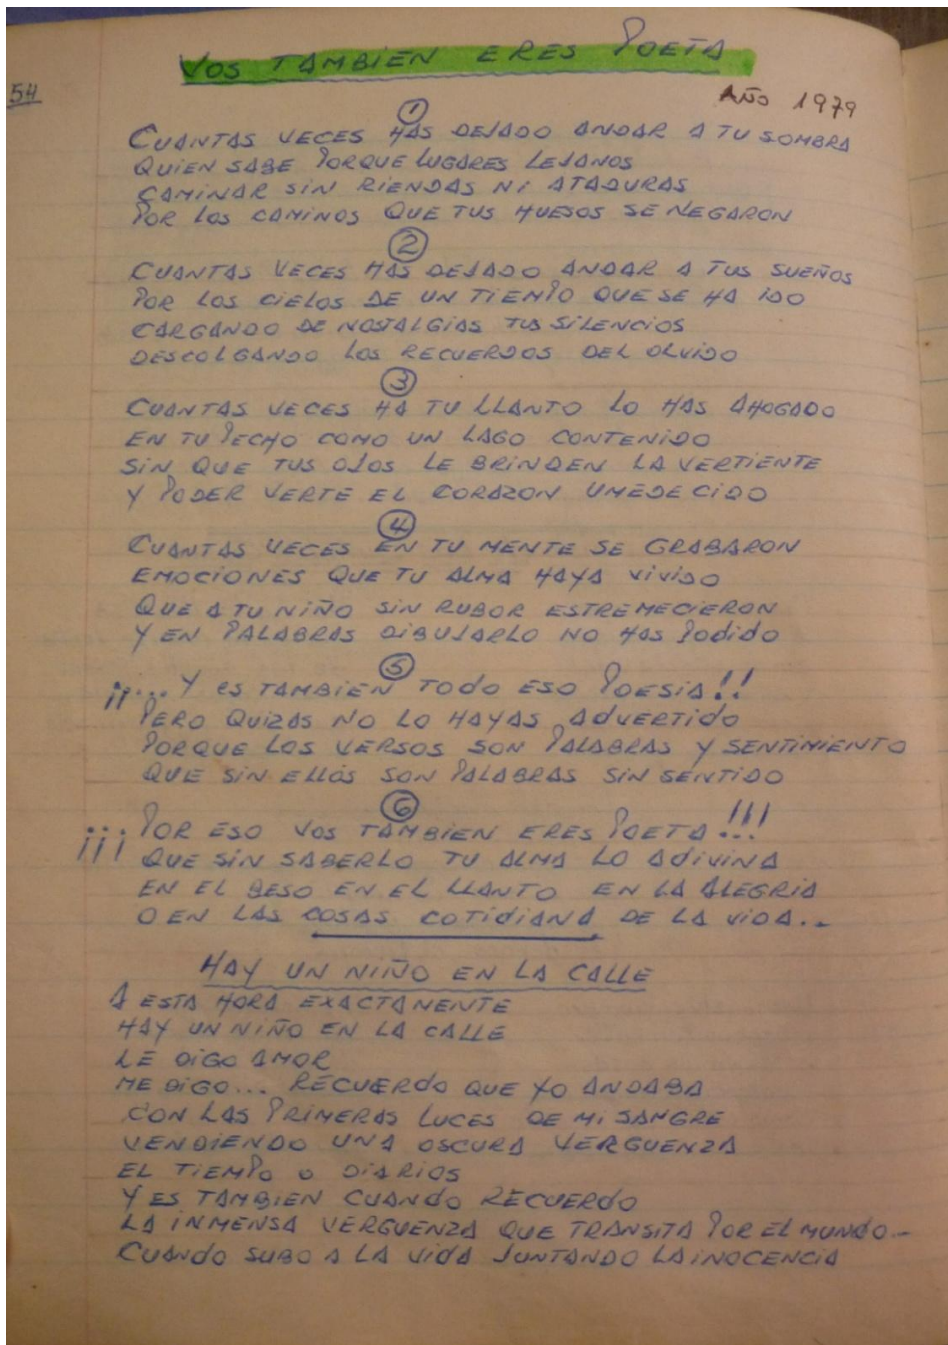 VOS TAMBIEN ERES POETA
54
AÑO 1979
1
CUANTAS VECES HAS DEJADO ANDAR A TU SOMBRA
QUIEN SABE PORQUE LUGARES LEJANOS
CAMINAR SIN RIENDAS NI ATADURAS
POR LOS CAMINOS QUE TUS HUESOS SE NEGARON
2
CUANTAS VECES HAS DEJADO ANDAR A TUS SUEÑOS
POR LOS CIELOS DE UN TIEMPO QUE SE HA IDO
CARGANDO DE NOSTALGIAS TUS SILENCIOS
DESCOLGANDO LOS RECUERDOS DEL OLVIDO
3
CUANTAS VECES HA TU LLANTO LO HAS AHOGADO
EN TU PECHO COMO UN LAGO CONTENIDO
SIN QUE TUS OJOS LE BRINDEN LA VERTIENTE
Y PODER VERTE EL CORAZON UMEDECIDO
4
CUANTAS VECES EN TU MENTE SE GRABARON
EMOCIONES QUE TU ALMA HAYA VIVIDO
QUE A TU NIÑO SIN RUBOR ESTREMECIERON
Y EN PALABRAS DIBUJARLO NO HAS PODIDO
5
¡¡... Y ES TAMBIEN TODO ESO POESIA!!
PERO QUIZAS NO LO HAYAS ADVERTIDO
PORQUE LOS VERSOS SON PALABRAS Y SENTIMIENTO
QUE SIN ELLOS SON PALABRAS SIN SENTIDO
6
¡¡¡ POR ESO VOS TAMBIEN ERES POETA!!!
QUE SIN SABERLO TU ALMA LO ADIVINA
EN EL BESO EN EL LLANTO EN LA ALEGRIA
O EN LAS COSAS COTIDIANA DE LA VIDA..
HAY UN NIÑO EN LA CALLE
A ESTA HORA EXACTAMENTE
HAY UN NIÑO EN LA CALLE
LE DIGO AMOR
ME DIGO... RECUERDO QUE YO ANDABA
CON LAS PRIMERAS LUCES DE MI SANGRE
VENDIENDO UNA OSCURA VERGUENZA
EL TIEMPO O DIARIOS
Y ES TAMBIEN CUANDO RECUERDO
LA INMENSA VERGUENZA QUE TRANSITA POR EL MUNDO.-
CUANDO SUBO A LA VIDA JUNTANDO LA INOCENCIA